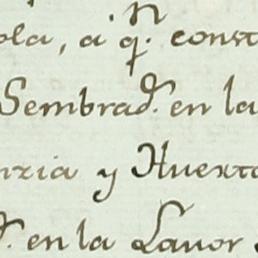 ola, á q.n const
Sembrad.s en la
nzia y Huerta
s. en la Lavor